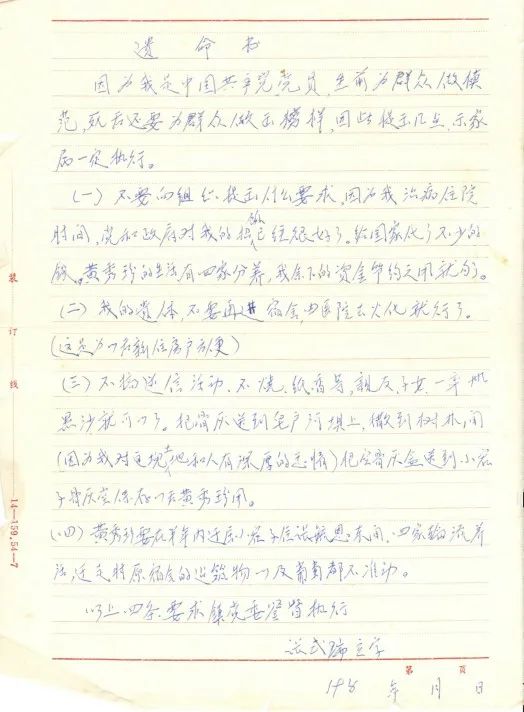 遗命书
因为我是中国共产党党员,生前为群众做模
范,死后还要为群众做出榜样,因此提出几点,示家
属一定执行。
(一) 不要向组织提出什么要求,因为我治病住院
时间,党和政府对我的照顾已经很好了。给国家化了不少的
钱。黄秀珍的生活有四家分养,我余下的资金节约之用就行。
(二) 我的遗体,不要再进宿舍,由医院去火化就行了。
(这是为了 住房户方便)
(三) 不搞迷信活动、不烧纸香等,親友、子女一率
黑沙就可以了。把骨灰送到 河埧上,撒到树林间
(因为我对 土地和人有深厚的感情)把骨灰盒送到小
子 保存以 黄秀珍用。
(四) 黄秀珍要在半年内迁居小 子住 东间,四家输流养
活,迁走时原宿舍的 物以及葡萄都不准动。
以上四条要求镇党委监督执行
立字
198 年 月 日
第 页
装
订
线
14—159.54—7